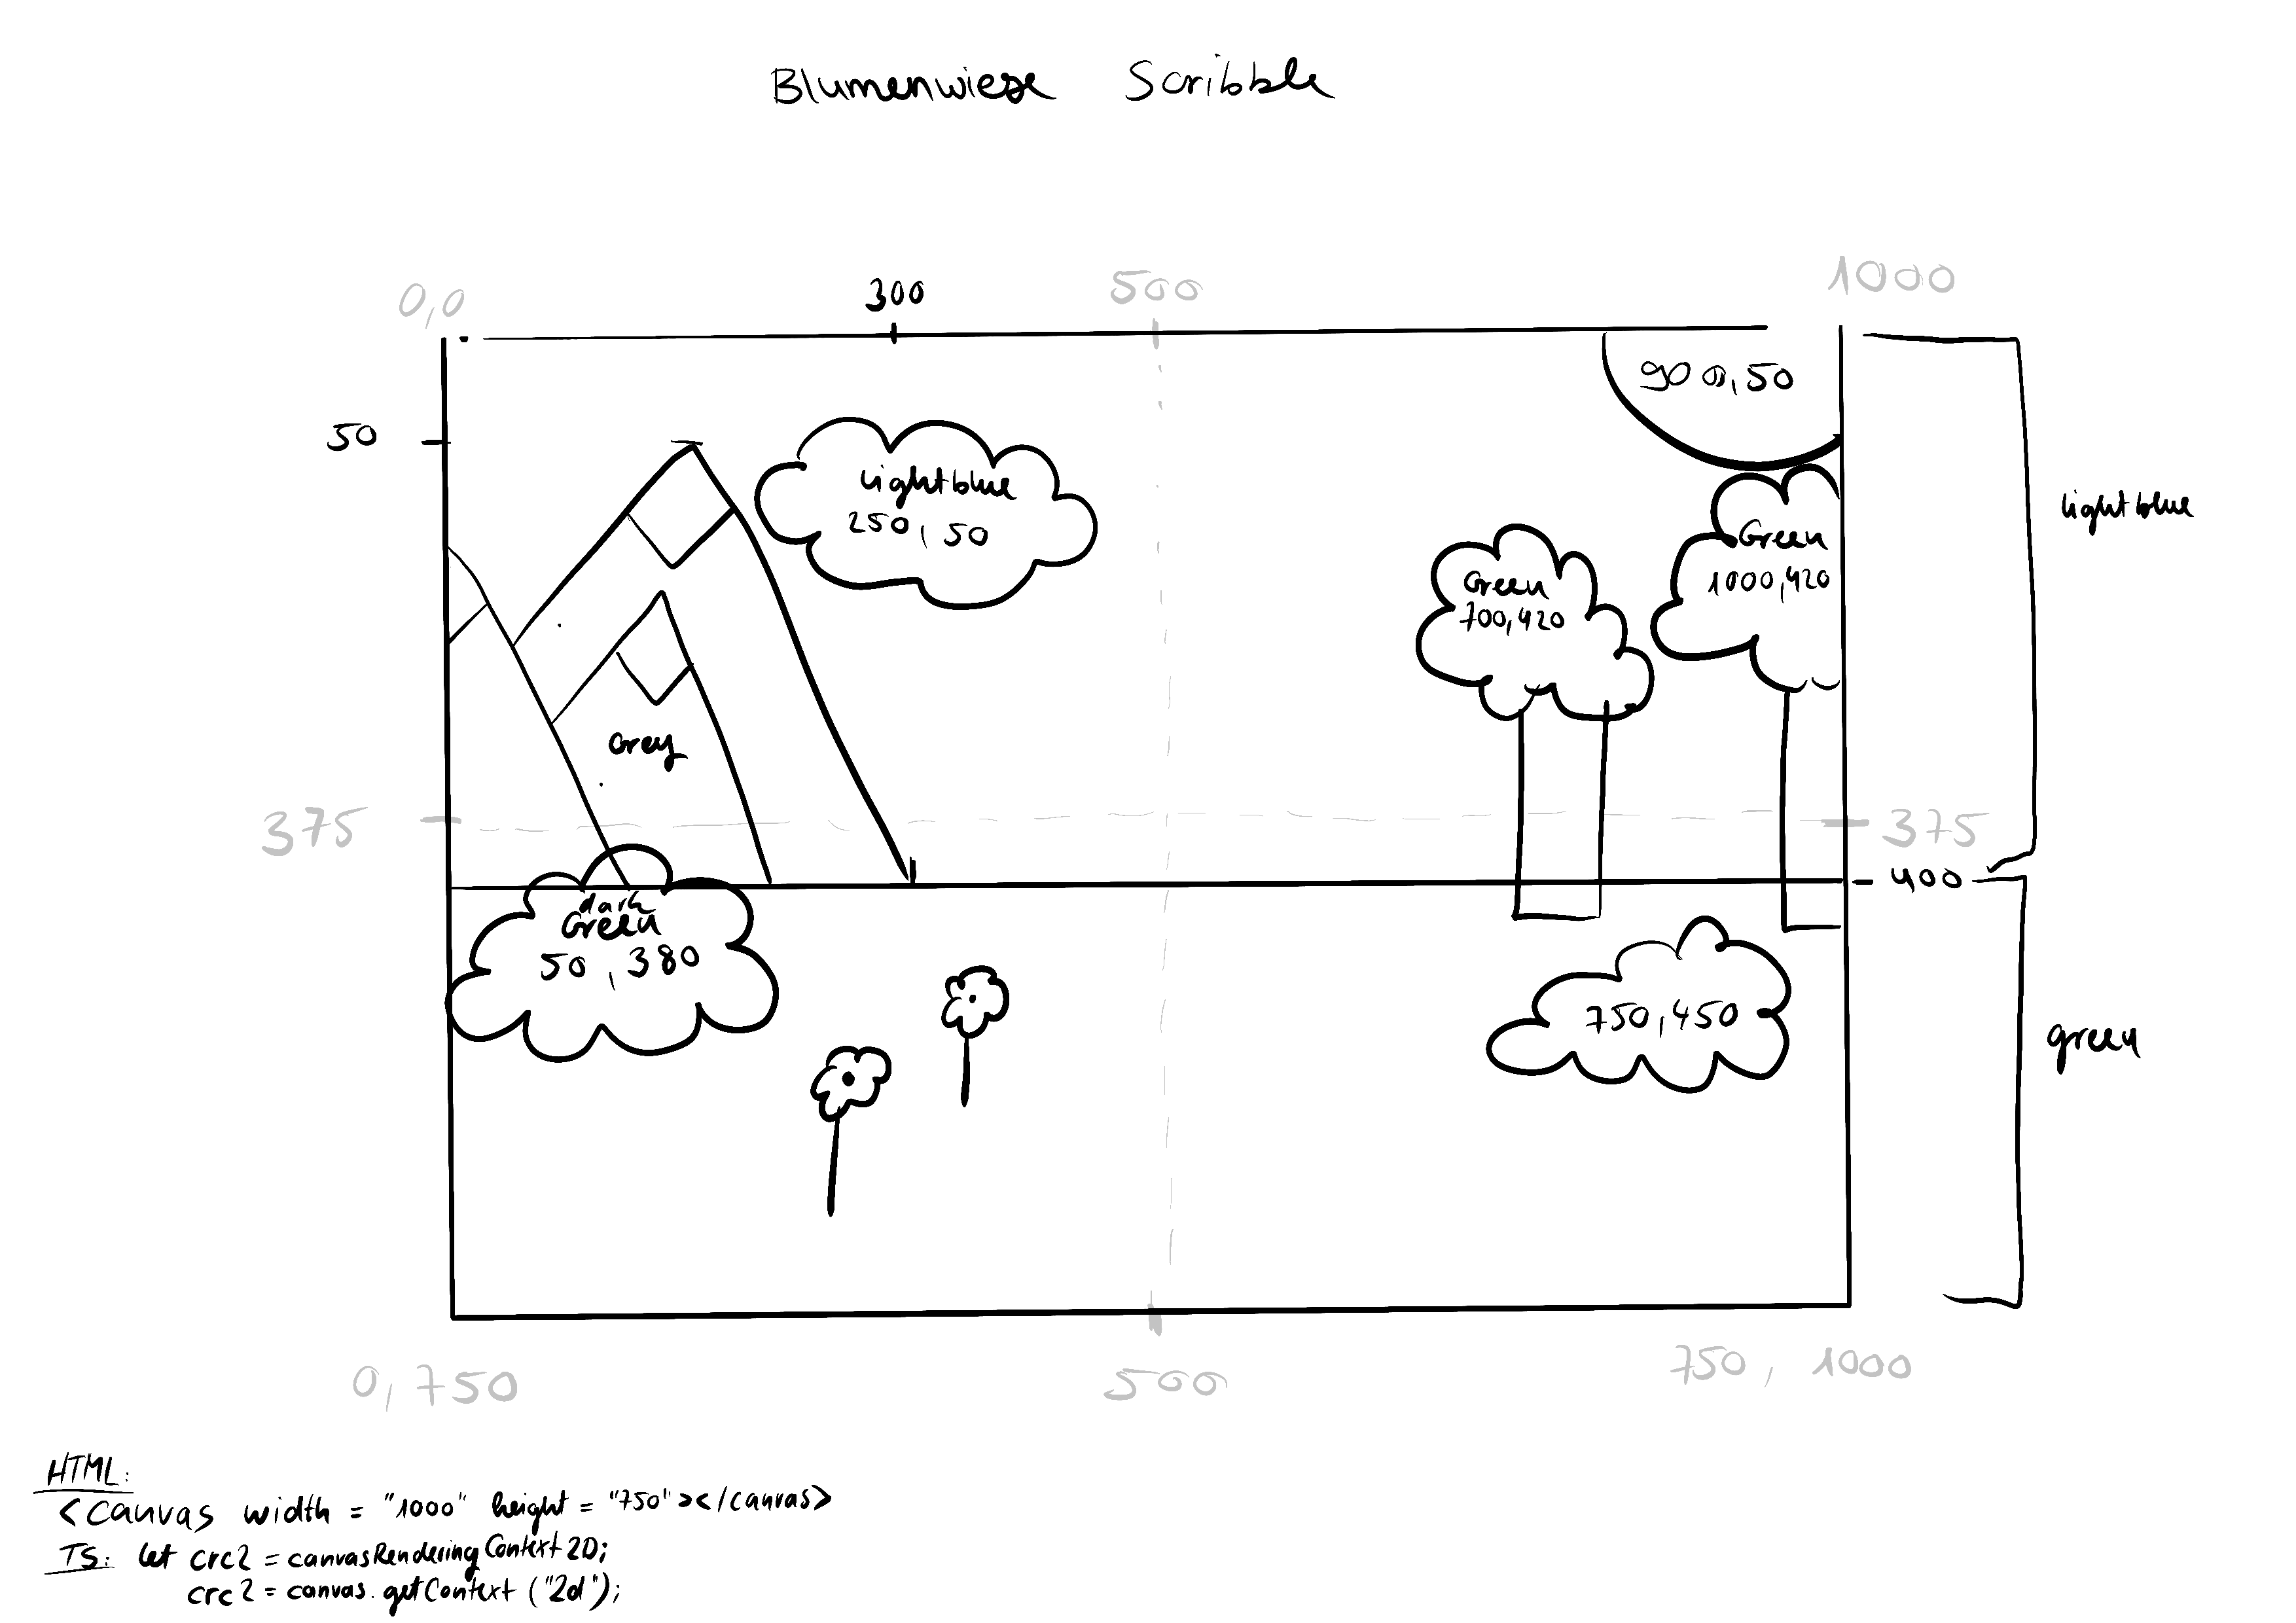 Blumenwiese Scribble
0,0
300
500
1000
50
900,50
lightblue
250, 50
lightblue
Green
1000,420
Green
700,420
Grey
375
375
400
dark
Green
50, 380
750,450
green
0,750
500
750, 1000
HTML:
<canvas width = "1000" height = "750"></canvas>
TS: let crc2 = canvasRenderingContext2D;
crc2 = canvas.getContext ("2d");